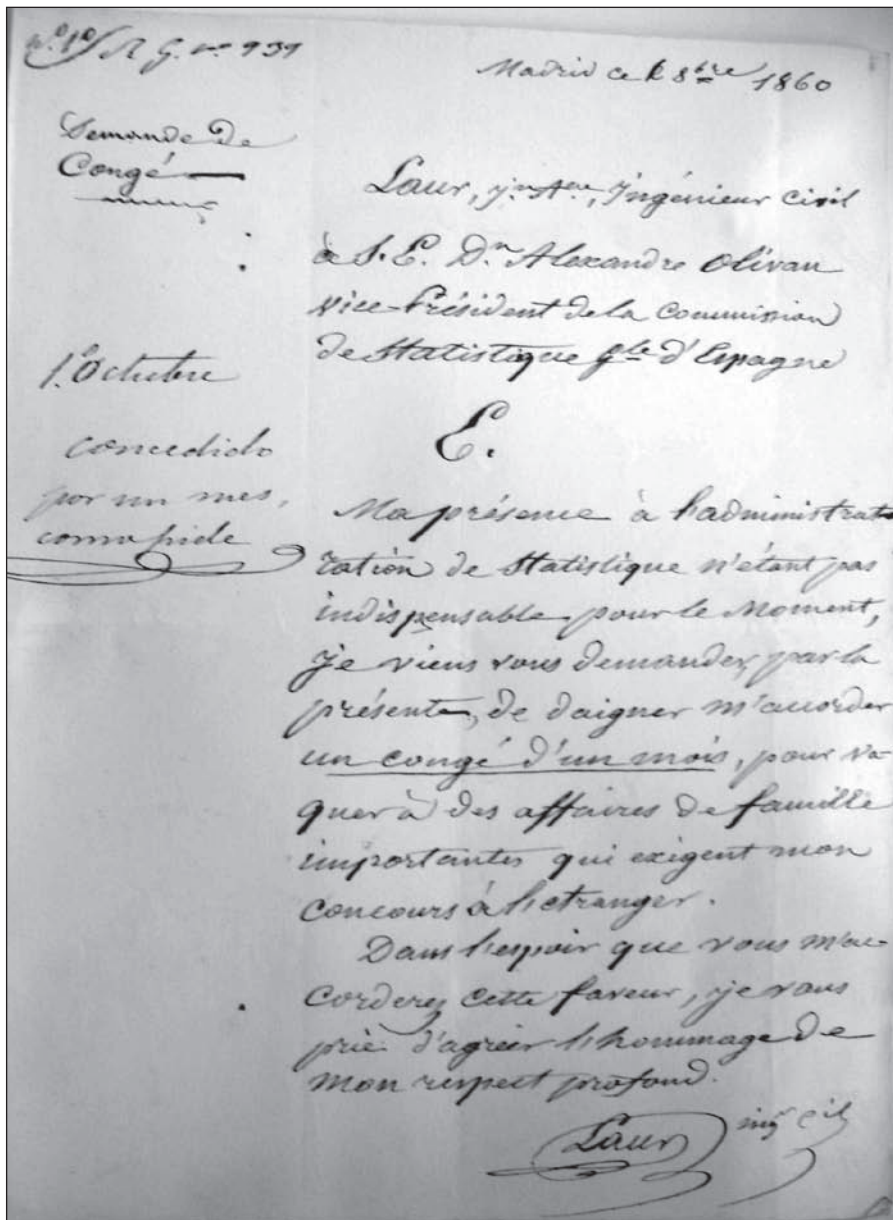 R. G. nº 939
Madrid ce 8bre 1860
Demande de
Congé
Laur, Ingénieur civil
à S. E. Dn Alexandre Olivan
vice-Président de la Commission
de Statistique gle d'Espagne
1º. Octubre
concedido
por un mes,
como pide
E.
Ma présence à l'administrat
ration de Statistique n'étant pas
indispensable pour le Moment,
je viens vous demander, par la
présente, de daigner m'accorder
un congé d'un mois, pour va-
quer à des affaires de famille
importantes qui exigent mon
concours à l'etranger.
Dans l'espoir que vous m'ac-
corderez cette faveur, je vous
prie d'agréer l'hommage de
mon respect profond.
Laur ing civ